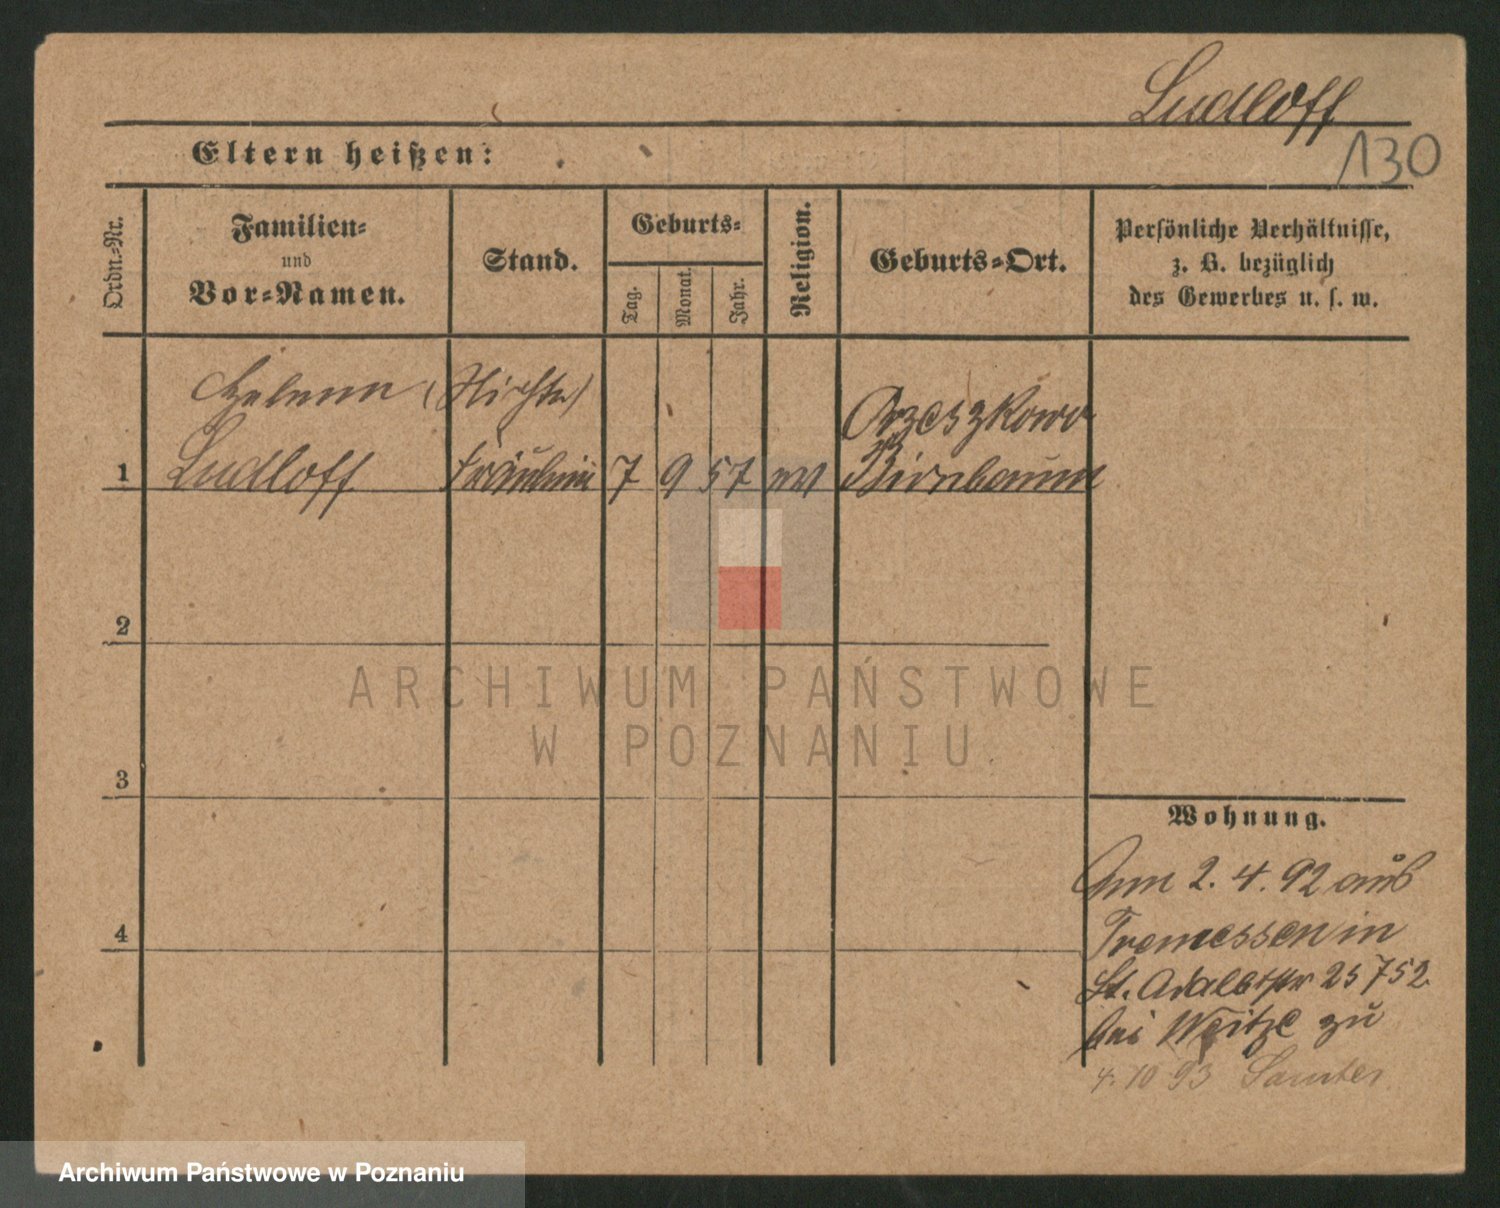 Ludloff
130
Eltern heißen:
Ordn.-Nr.
Familien-
und
Vor-Namen.
Stand.
Geburts-
Tag.
Monat.
Jahr.
Religion.
Geburts-Ort.
Persönliche Verhältnisse,
z. B. bezüglich
des Gewerbes u. s. w.
Helene
Ludloff
Fräulein
7
9
57
ev
Orzeszkowo
Birnbaum
1
2
3
4
ARCHIWUM PAŃSTWOWE
W POZNANIU
Wohnung.
2. 4. 92 aus
Tremessen in
St. Adalbtstr 25 752
bei Weitze zu
4. 10 93 Samter
Archiwum Państwowe w Poznaniu